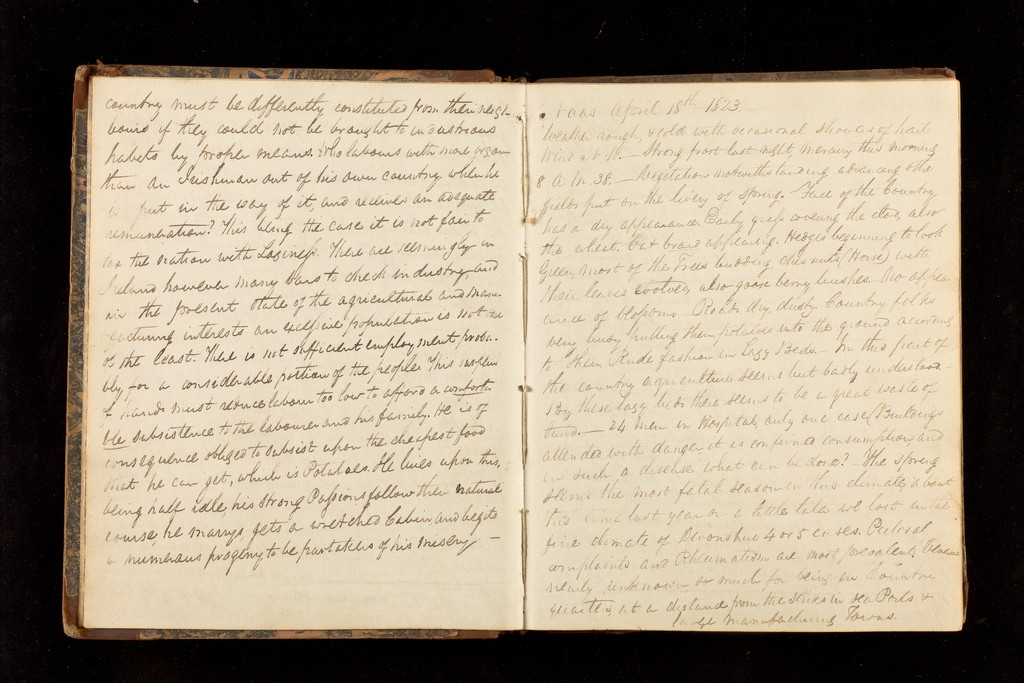 country must be differently constituted from their neigh-
bours if they could not be brought to industrious
habits by proper means. Who labours with more vigour
than an Irishman out of his own country when he
is put in the way of it, and receives an adequate
remuneration? This being the case it is not fair to
tax the nation with Laziness. There are seemingly in
Ireland however many bars to check industry, and
in the present state of the agricultural and manu-
facturing interests an excessive population is not one
of the least. There is not sufficient employment proba-
bly, for a considerable portion of the people. This
of hands must reduce labour too low to afford a comforta-
ble subsistence to the labourer and his family. He is of
consequence obliged to subsist upon the cheapest food
that he can get, which is Potatoes. He lives upon this,
being half idle, his strong Passions follow their natural
course, he marrys, gets a wretched Cabin, and begets
a numerous progeny to be partakers of his misery —
Naas April 18th 1823
Weather rough, & cold with occasional showers of hail
Wind N.W. — Strong frost last night, mercury this morning
8 A.M. 38. — Vegetation notwithstanding advancing & the
fields put on the livery of Spring. Face of the Country
has a dry appearance Early grass covering the clod, also
the wheat, appearing. Hedges beginning to look
Green, most of the Trees budding, chesnuts (Horse) with
their leaves evolved, also gooseberry bushes. No appear-
ance of blossoms. Roads dry, dusty. Country folks
very busy putting their potatoes into the ground according
to their Rude fashion in Lazy Beds. — In this part of
the country agriculture seems but badly understood.
By these lazy beds there seems to be a great waste of
land. — 24 men in Hospital, only one case (Buildings
attended with danger, it is confirmed consumption and
in such a disease what can be done? The spring
seems the most fatal season in this climate, about
this time last year or a little later we lost in the
fine climate of Devonshire 4 or 5 cases. Pectoral
complaints and Rheumatism are most prevalent,
nearly unknown, so much for being in Country
quarters, at a distance from the in sea Ports &
large manufacturing Towns.